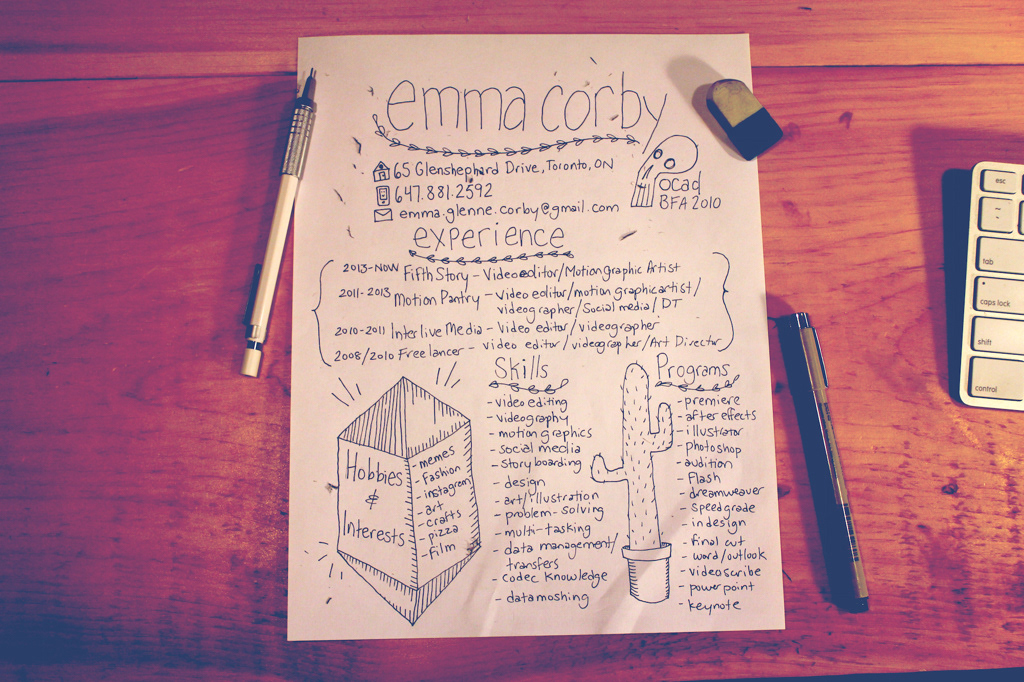 emma corby
65 Glenshephard Drive, Toronto, ON
647.881.2592
emma.glenne.corby@gmail.com
ocad
BFA 2010
experience
2013-NOW Fifth Story - Video editor/Motion Graphic Artist
2011-2013 Motion Pantry - video editor/motion graphic artist/
videographer/Social media/DT
2010-2011 Interlive Media - Video editor/videographer
2008/2010 Freelancer - video editor/videographer/Art Director
Hobbies
&
Interests
- memes
- Fashion
- instagram
- art
- crafts
- pizza
- film
Skills
- video editing
- videography
- motion graphics
- social media
- story boarding
- design
- art/illustration
- problem-solving
- multi-tasking
- data management/
transfers
- codec knowledge
- datamoshing
Programs
- premiere
- after effects
- illustrator
- photoshop
- audition
- flash
- dreamweaver
- speedgrade
- indesign
- final cut
- word/outlook
- videoscribe
- powerpoint
- keynote
esc
~
tab
caps lock
shift
control